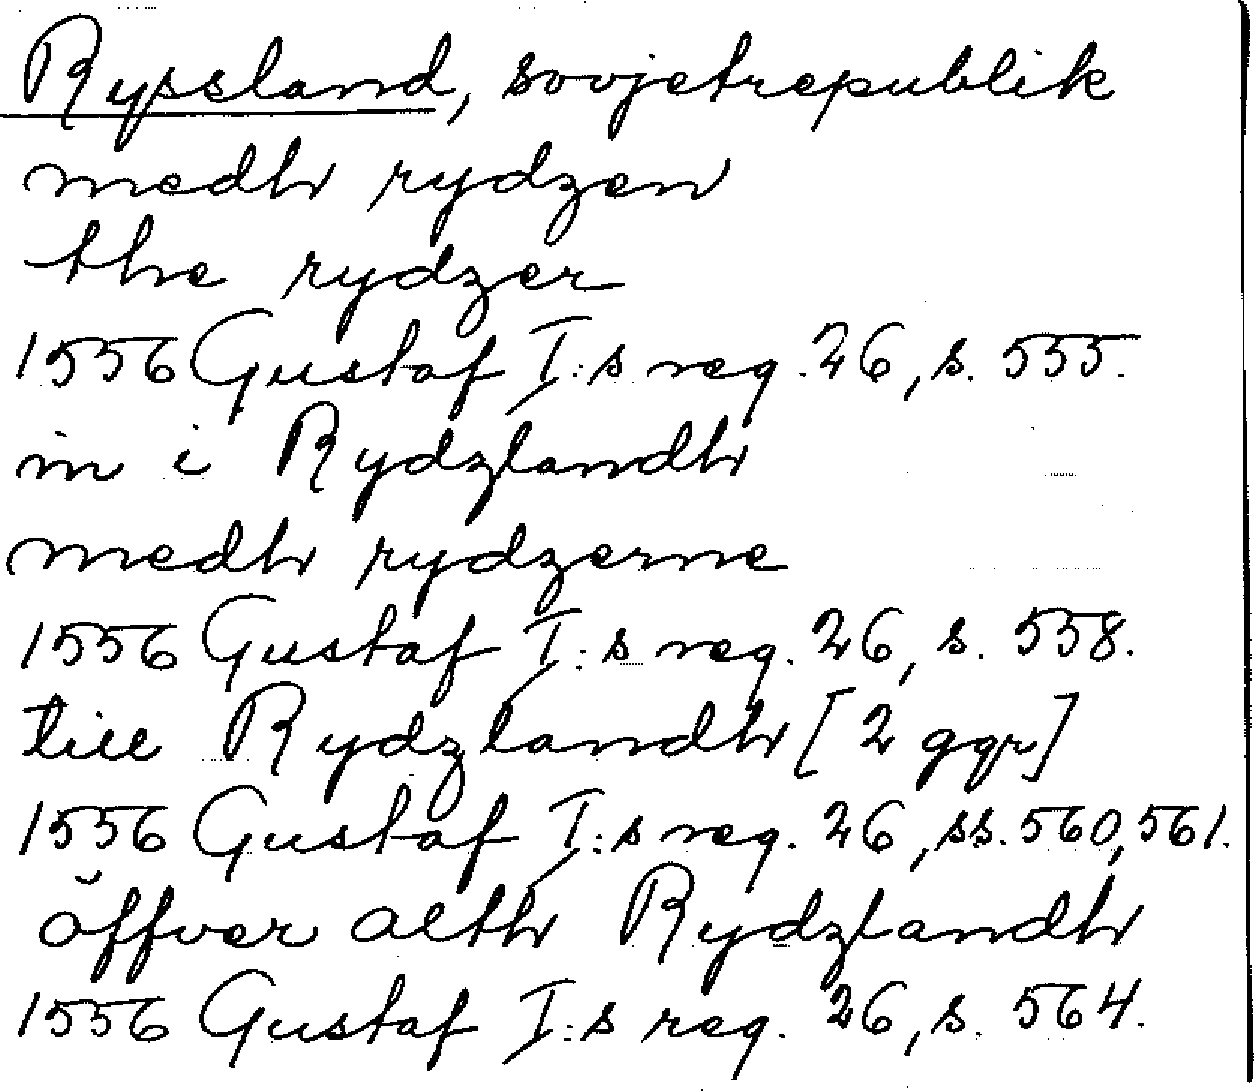 Ryssland, sovjetrepublik
medh rydzen
the rydzer
1556 Gustaf I:s reg. 26, s. 555.
in i Rydzlandh
medh rydzerne
1556 Gustaf I:s reg. 26, s. 558.
till Rydzlandh [2 ggr]
1556 Gustaf I:s reg. 26, ss. 560, 561.
öffver alth Rydzlandh
1556 Gustaf I:s reg. 26, s. 564.